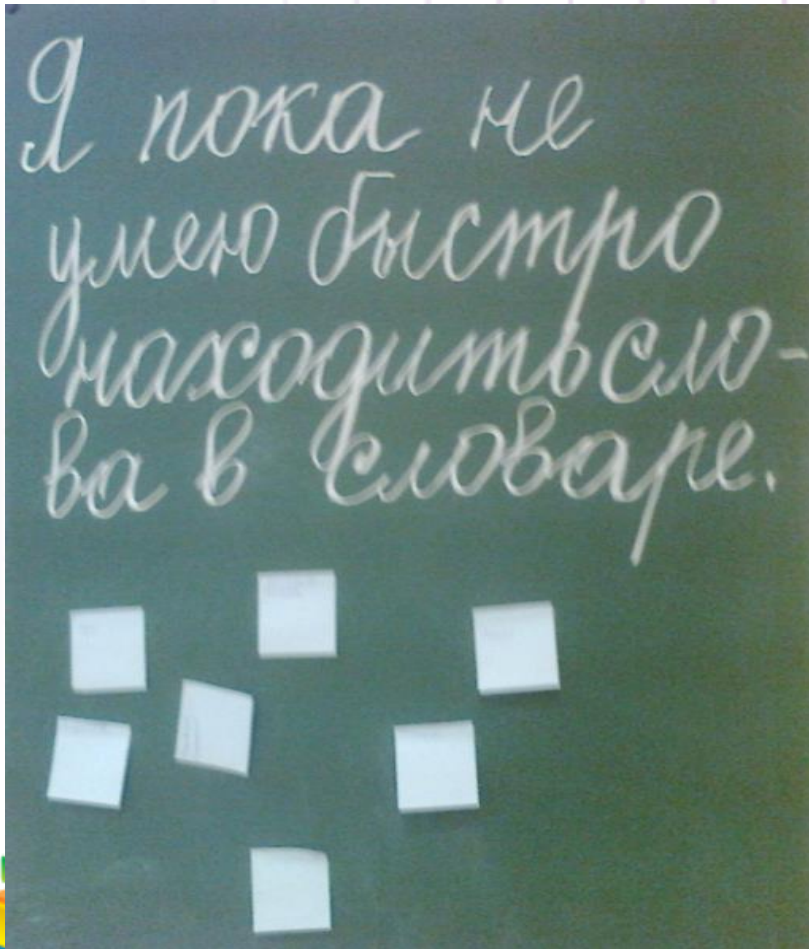 Я пока не
умею быстро
находить сло-
ва в словаре.